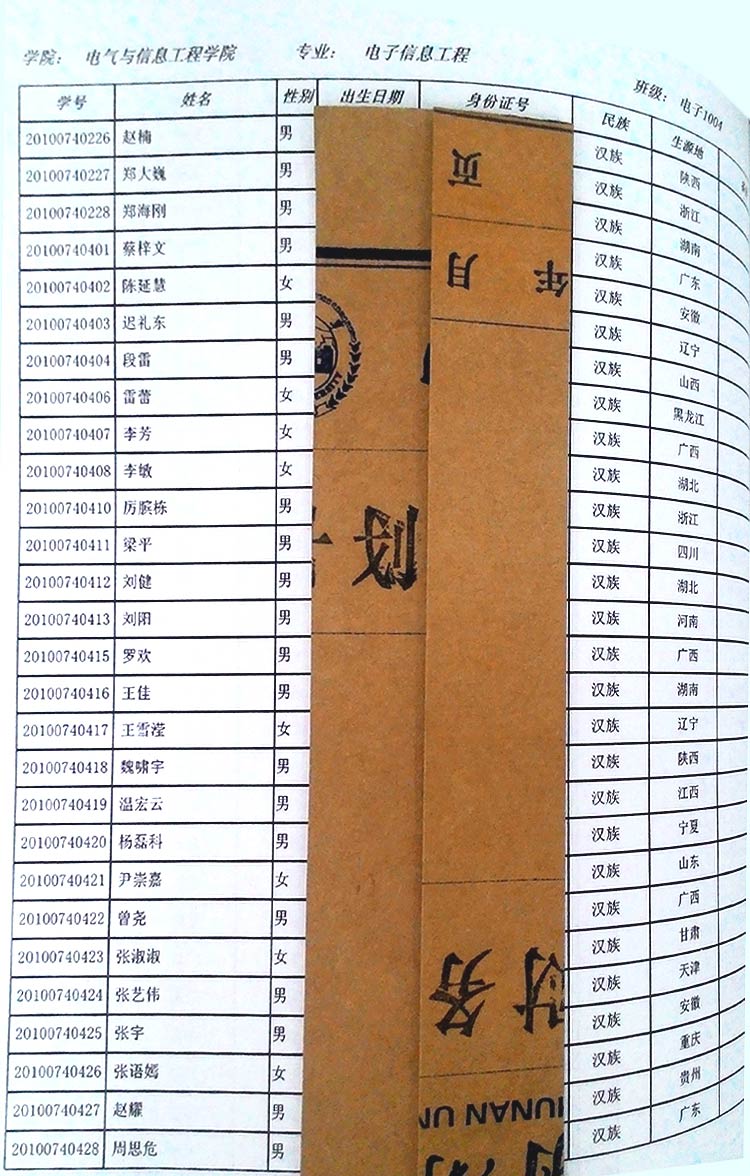 学院： 电气与信息工程学院 专业： 电子信息工程 班级： 电子1004
学号 姓名 性别 出生日期 身份证号 民族 生源地
20100740226 赵楠 男 汉族 陕西
20100740227 郑大巍 男 汉族 浙江
20100740228 郑海刚 男 汉族 湖南
20100740401 蔡梓文 男 汉族 广东
20100740402 陈延慧 女 汉族 安徽
20100740403 迟礼东 男 汉族 辽宁
20100740404 段雷 男 汉族 山西
20100740406 雷蕾 女 汉族 黑龙江
20100740407 李芳 女 汉族 广西
20100740408 李敏 女 汉族 湖北
20100740410 厉膑栋 男 汉族 浙江
20100740411 梁平 男 汉族 四川
20100740412 刘健 男 汉族 湖北
20100740413 刘阳 男 汉族 河南
20100740415 罗欢 男 汉族 广西
20100740416 王佳 男 汉族 湖南
20100740417 王雪滢 女 汉族 辽宁
20100740418 魏啸宇 男 汉族 陕西
20100740419 温宏云 男 汉族 江西
20100740420 杨磊科 男 汉族 宁夏
20100740421 尹崇嘉 女 汉族 山东
20100740422 曾尧 男 汉族 广西
20100740423 张淑淑 女 汉族 甘肃
20100740424 张艺伟 男 汉族 天津
20100740425 张宇 男 汉族 安徽
20100740426 张语嫣 女 汉族 重庆
20100740427 赵耀 男 汉族 贵州
20100740428 周思危 男 汉族 广东
页
年 月
财务
HUNAN UN